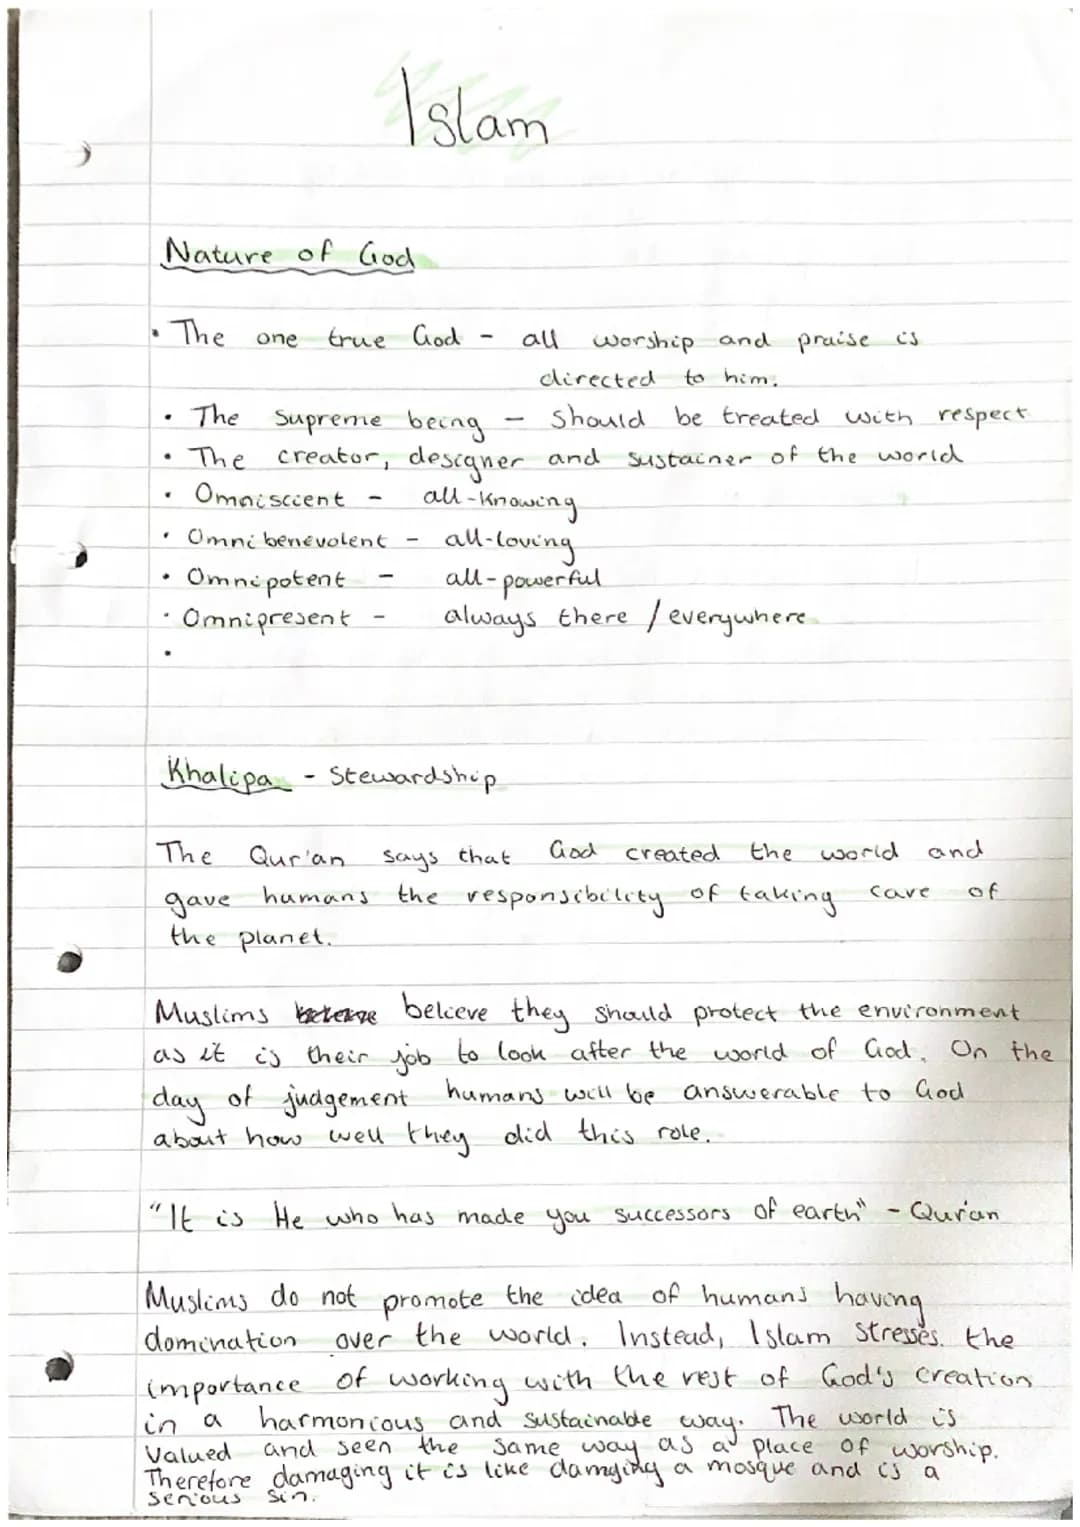 Islam
Nature of God
• The one true God - all worship and praise is
directed to him.
• The Supreme being - Should be treated with respect
• The creator, designer and sustainer of the world
• Omniscient - all-knowing
• Omnibenevolent - all-loving
• Omnipotent - all-powerful
• Omnipresent - always there / everywhere
•
Khalipa - Stewardship
The Qur'an says that God created the world and
gave humans the responsibility of taking care of
the planet.
Muslims believe they should protect the environment
as it is their job to look after the world of God. On the
day of judgement humans will be answerable to God
about how well they did this role.
"It is He who has made you successors of earth" - Qur'an
Muslims do not promote the idea of humans having
domination over the world. Instead, Islam stresses. the
importance of working with the rest of God's creation
in a harmonious and sustainable way. The world is
valued and seen the same way as a place of worship.
Therefore damaging it is like damging a mosque and is a
serious sin.